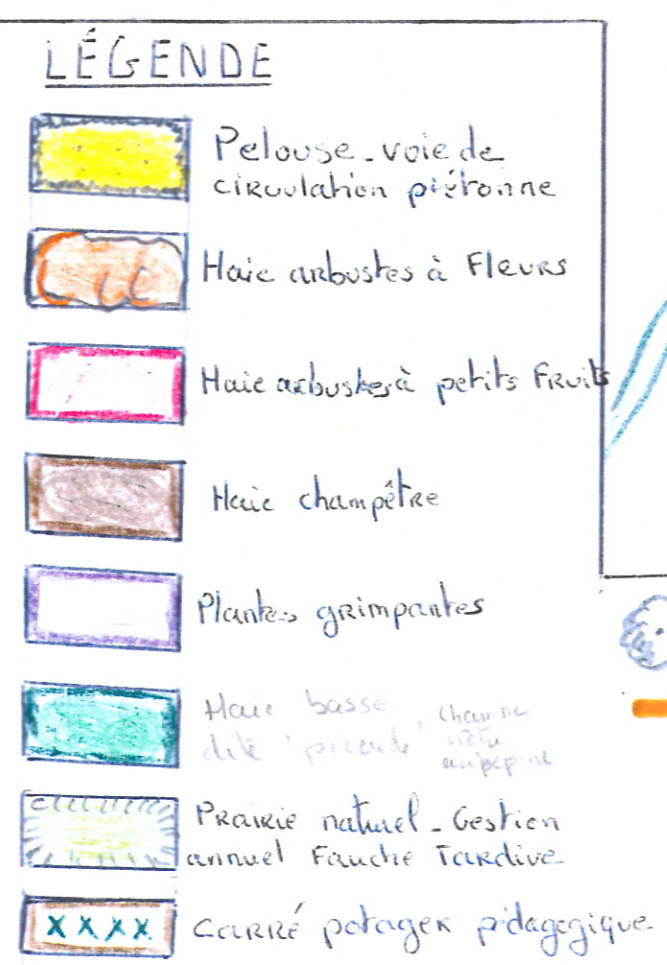 LÉGENDE
Pelouse - voie de
circulation piétonne
Haie arbustes à Fleurs
Haie arbustes à petits Fruits
Haie champêtre
Plantes grimpantes
Haie basse, charme
dite
Prairie naturel - Gestion
annuel Fauche Tardive
XXXX Carré potager pédagogique